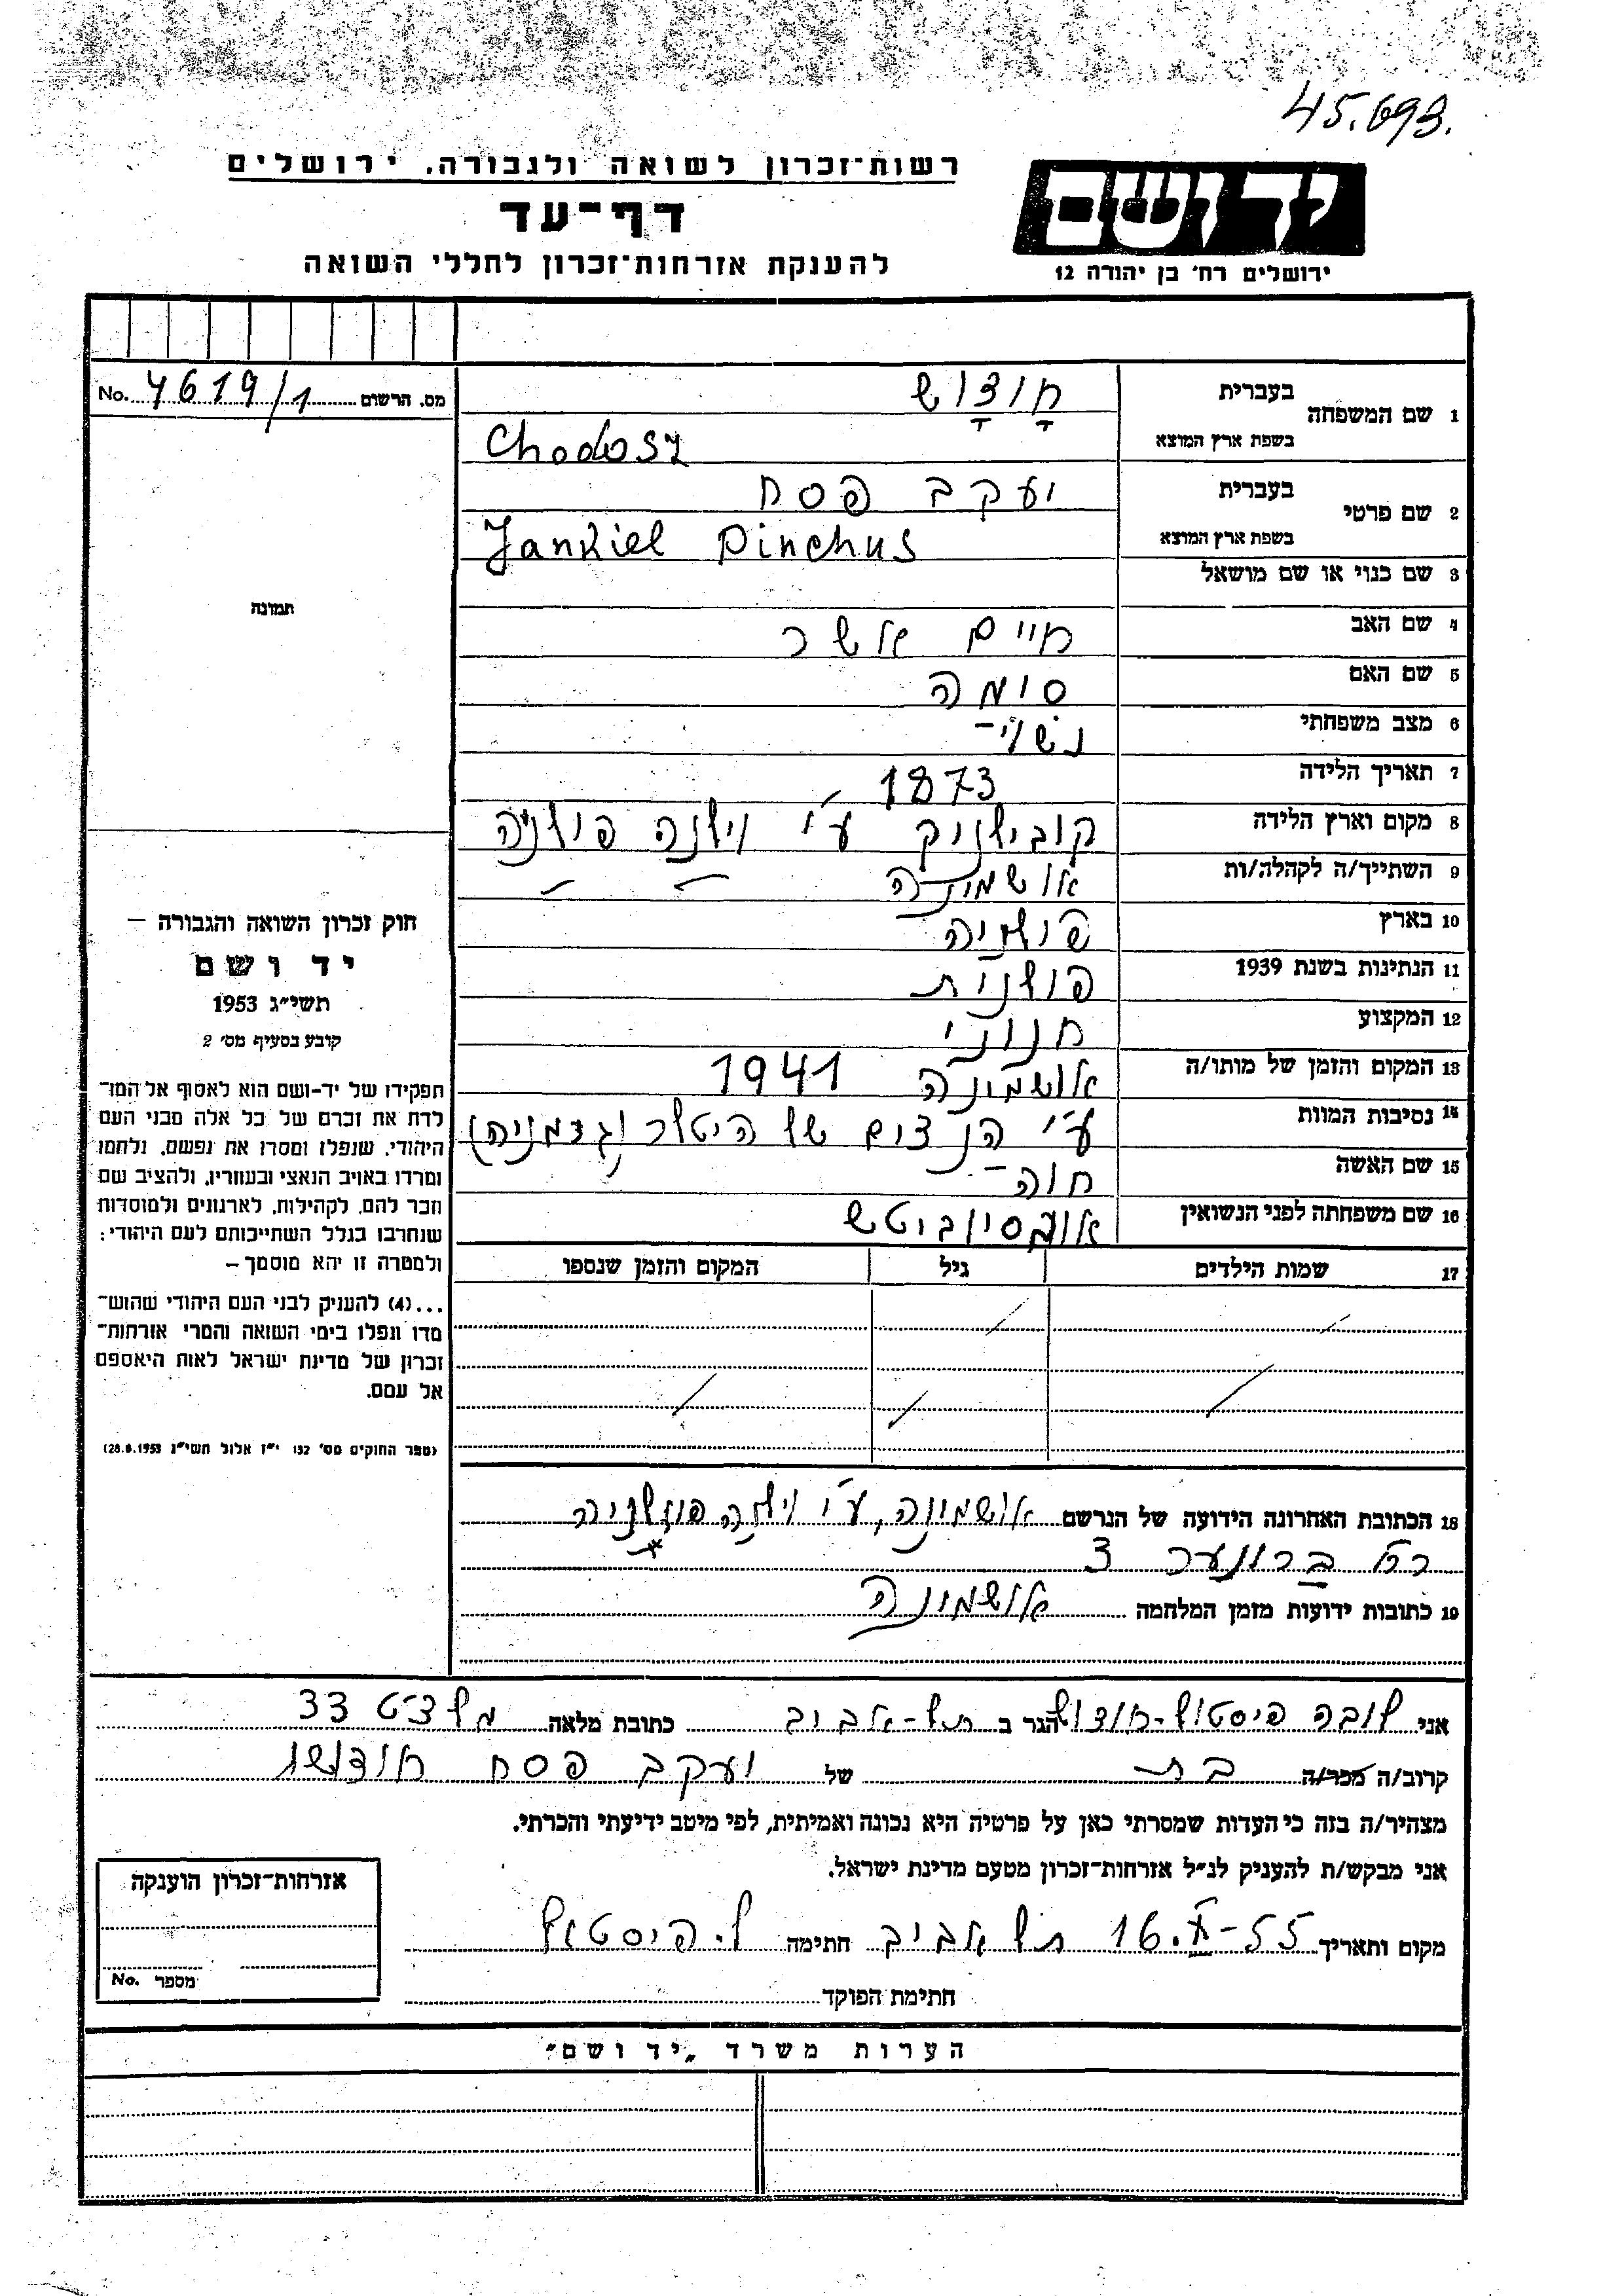 45.693.
רשות-זכרון לשואה ולגבורה, ירושלים
ידושם
דף-עד
ירושלים רח׳ בן יהודה 12
להענקת אזרחות-זכרון לחללי השואה
מס. הרשום 4619/1 No.
1 שם המשפחה בעברית חודוש
בשפת ארץ המוצא Chodosz
2 שם פרטי בעברית יעקב פסח
בשפת ארץ המוצא Jankiel Pinchus
3 שם כנוי או שם מושאל
תמונה
4 שם האב חיים אשר
5 שם האם סימה
6 מצב משפחתי נשוי-
7 תאריך הלידה 1873
8 מקום וארץ הלידה קובילניק ע״י וילנה פולניה
9 השתייך/ה לקהלה/ות אושמינה
10 בארץ פולניה
11 הנתינות בשנת 1939 פולנית
12 המקצוע חנוני
13 המקום והזמן של מותו/ה אושמינה 1941
14 נסיבות המוות ע״י הנצים של היטלר (גרמניה)
15 שם האשה חוה-
16 שם משפחתה לפני הנשואין
17 שמות הילדים גיל המקום והזמן שנספו
חוק זכרון השואה והגבורה –
יד ושם
תשי״ג 1953
קובע בסעיף מס׳ 2
תפקידו של יד-ושם הוא לאסוף אל המו-
לדת את זכרם של כל אלה מבני העם
היהודי, שנפלו ומסרו את נפשם, נלחמו
ומרדו באויב הנאצי ובעוזריו, ולהציב שם
וזכר להם, לקהילות, לארגונים ולמוסדות
שנחרבו בגלל השתייכותם לעם היהודי;
ולמטרה זו יהא מוסמך –
...(4) להעניק לבני העם היהודי שהוש-
מדו ונפלו בימי השואה והמרי אזרחות-
זכרון של מדינת ישראל לאות היאספם
אל עמם.
(ספר החוקים מס׳ 132 י״ז אלול תשי״ג 28.8.1953)
18 הכתובת האחרונה הידועה של הנרשם אושמינה, ע״י וילנה פולניה
רח׳ ברונער 3
19 כתובות ידועות מזמן המלחמה אושמינה
אני לובה פיסטול-חודוש הגר ב תל-אביב כתובת מלאה מלצ׳ט 33
קרוב/ה מכר/ה בת של יעקב פסח חודוש
מצהיר/ה בזה כי העדות שמסרתי כאן על פרטיה היא נכונה ואמיתית, לפי מיטב ידיעתי והכרתי.
אני מבקש/ת להעניק לנ״ל אזרחות-זכרון מטעם מדינת ישראל.
מקום ותאריך 16.X-55 תל אביב חתימה ל. פיסטול
חתימת הפוקד
אזרחות-זכרון הוענקה
מספר No.
הערות משרד „יד ושם״